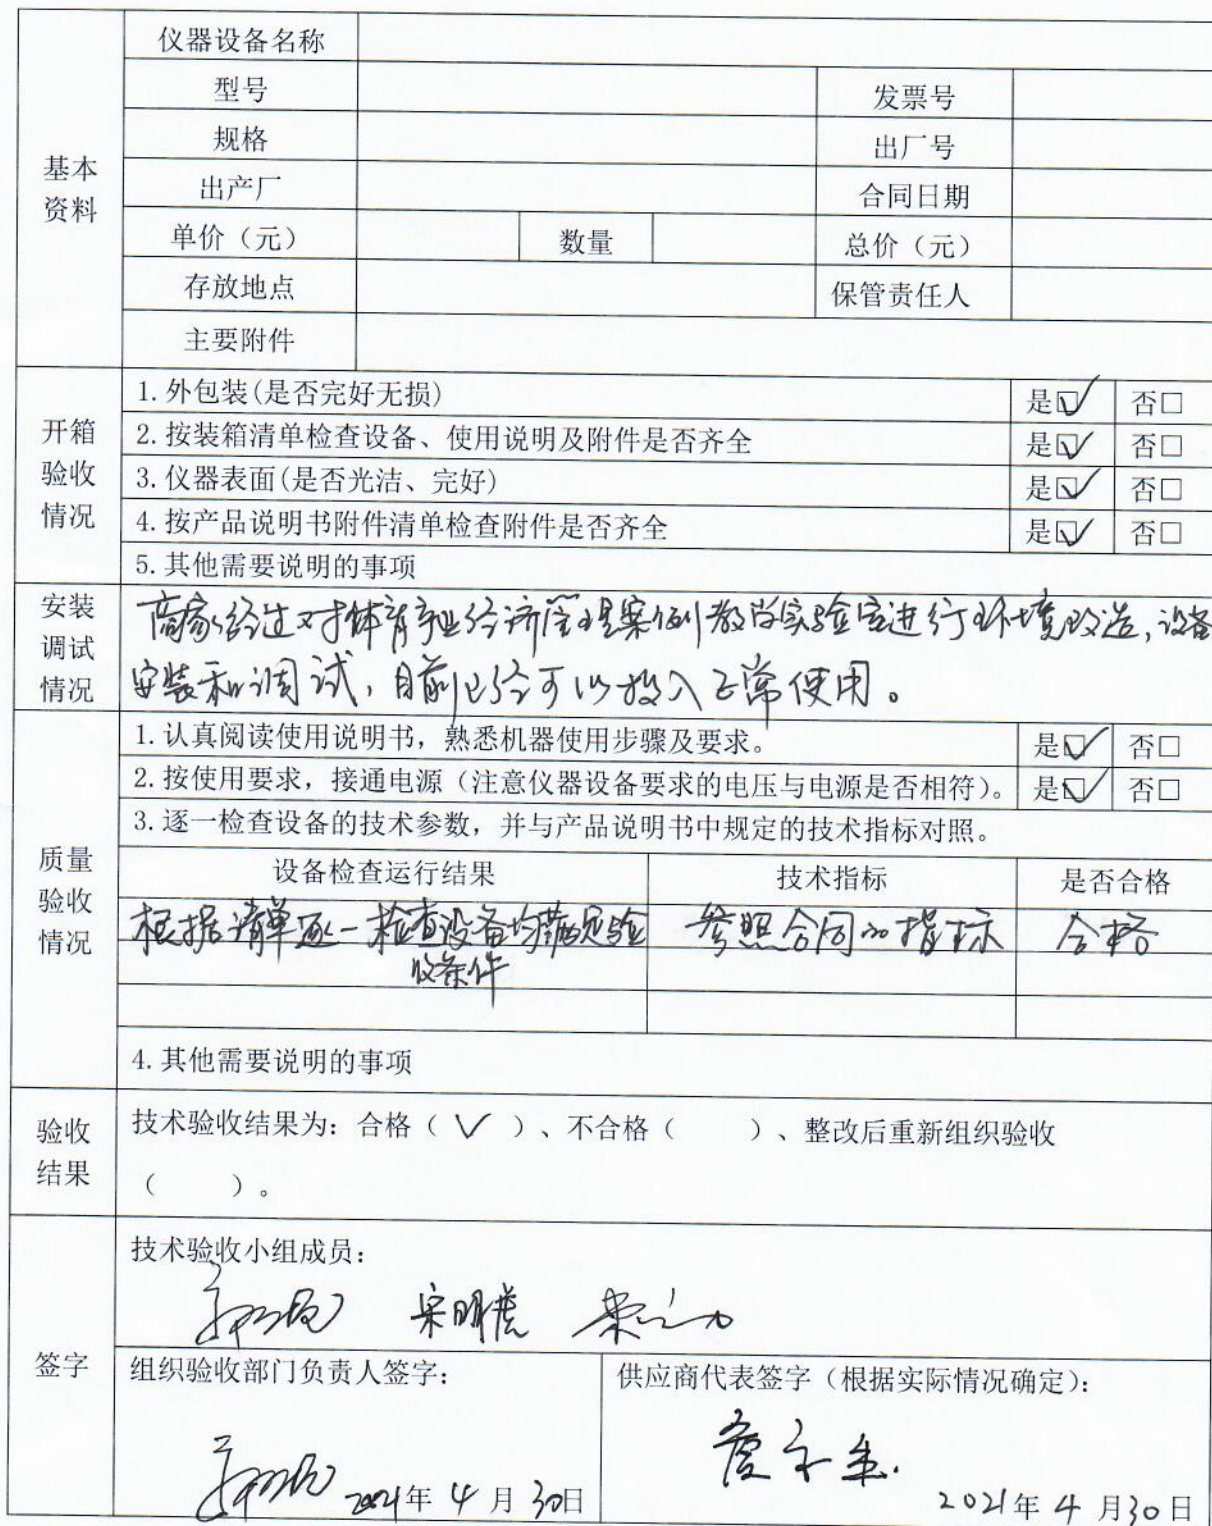 仪器设备名称
型号 发票号
规格 出厂号
基本
资料
出产厂 合同日期
单价（元） 数量 总价（元）
存放地点 保管责任人
主要附件
开箱
验收
情况
1.外包装(是否完好无损) 是☑ 否□
2.按装箱清单检查设备、使用说明及附件是否齐全 是☑ 否□
3.仪器表面(是否光洁、完好) 是☑ 否□
4.按产品说明书附件清单检查附件是否齐全 是☑ 否□
5.其他需要说明的事项
安装
调试
情况
商家经过对体育产业经济管理案例教学实验室进行环境改造,设备
安装和调试,目前已经可以投入正常使用。
质量
验收
情况
1.认真阅读使用说明书，熟悉机器使用步骤及要求。 是☑ 否□
2.按使用要求，接通电源（注意仪器设备要求的电压与电源是否相符）。 是☑ 否□
3.逐一检查设备的技术参数，并与产品说明书中规定的技术指标对照。
设备检查运行结果 技术指标 是否合格
根据清单逐一检查设备均满足验 参照合同的指标 合格
收条件
4.其他需要说明的事项
验收
结果
技术验收结果为：合格（ ✓ ）、不合格（ ）、整改后重新组织验收
（ ）。
签字
技术验收小组成员：
宋明虎
组织验收部门负责人签字： 供应商代表签字（根据实际情况确定）：
2021年 4 月 30日 2021年 4 月30日